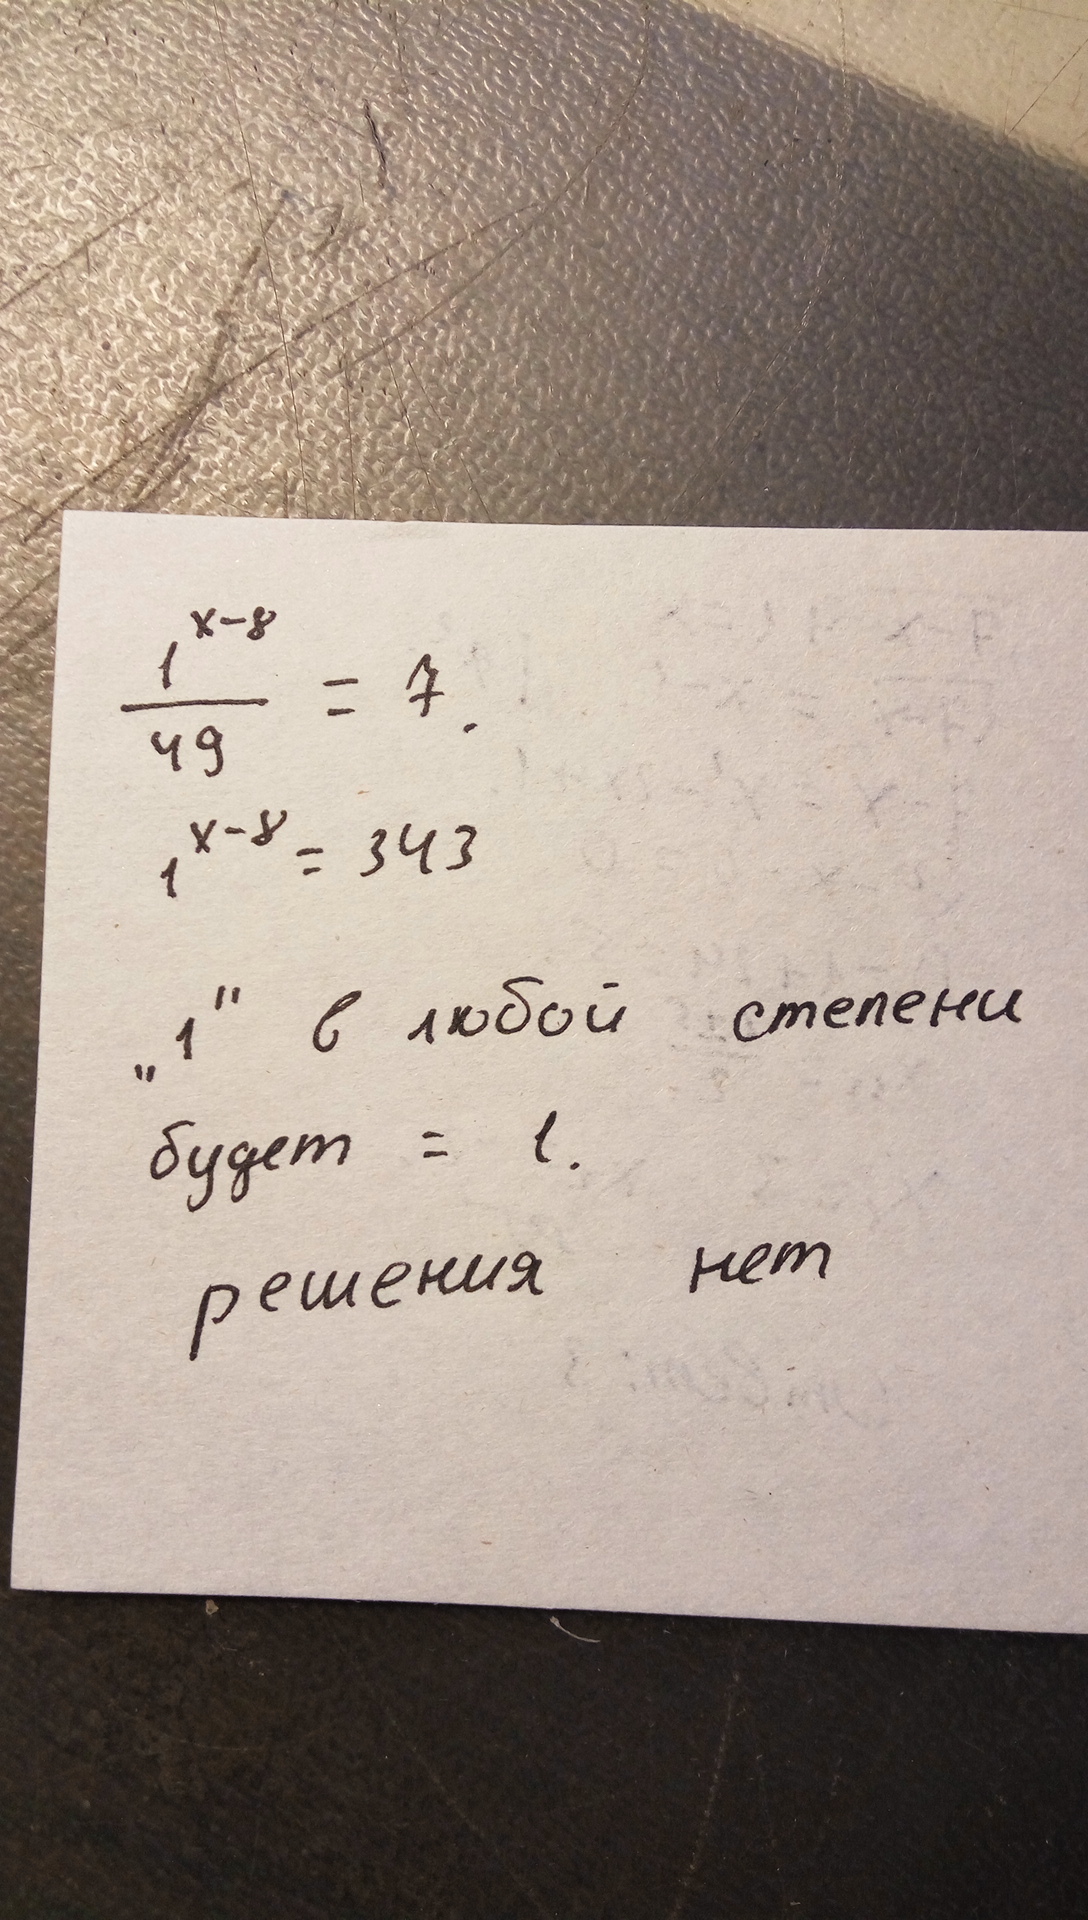 1^{x-8}/49 = 7.
1^{x-8} = 343
„1" в любой степени
будет = 1.
решения нет